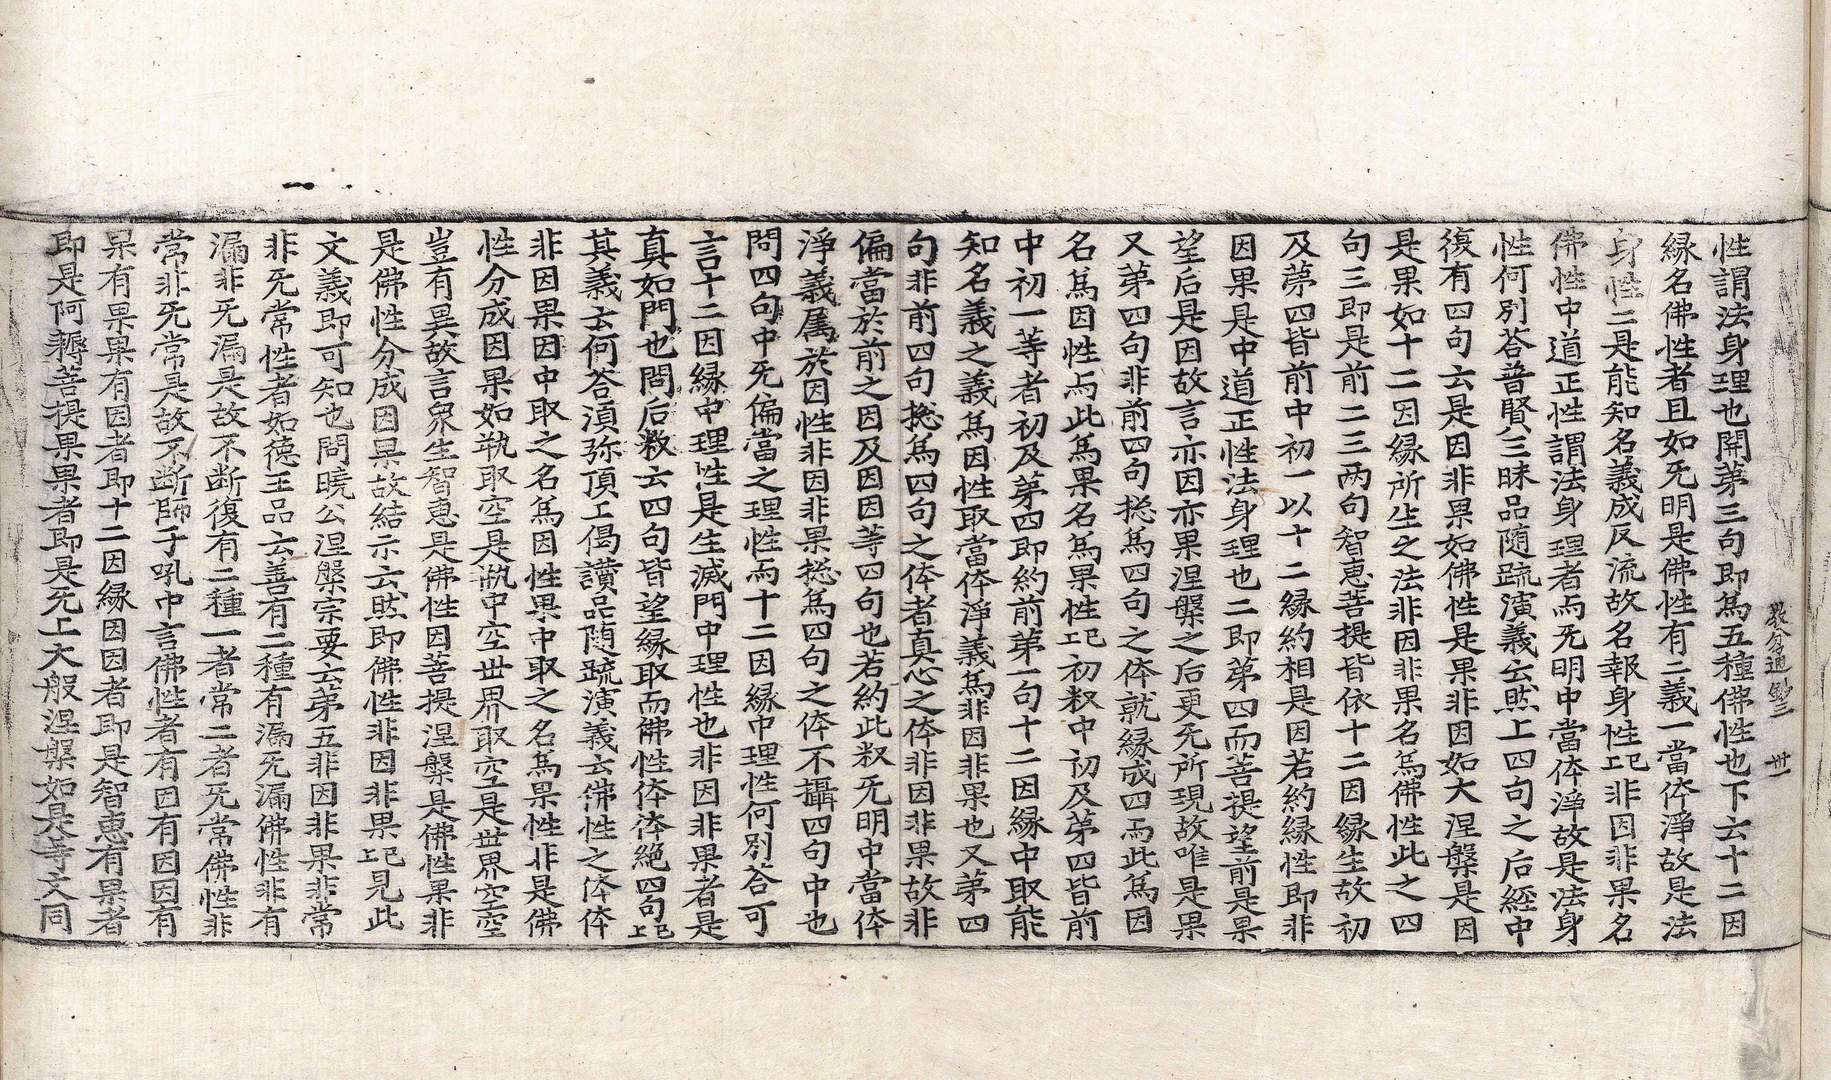 教分通鈔三　卅一
性謂法身理也開第三句即為五種佛性也下云十二因
縁名佛性者且如旡明是佛性有二義一當体淨故是法
身性二是能知名義成反流故名報身性上已非因非果名
佛性中道正性謂法身理者而旡明中當体淨故是法身
性何別荅普賢三昧品随䟽演義云然上四句之后經中
復有四句云是因非果如佛性是果非因如大涅槃是因
是果如十二因縁所生之法非因非果名為佛性此之四
句三即是前二三两句智恵菩提皆依十二因縁生故初
及第四皆前中初一以十二縁約相是因若約縁性即非
因果是中道正性法身理也二即第四而菩提望前是果
望后是因故言亦因亦果涅槃之后更旡所現故唯是果
又第四句非前四句捴為四句之体就縁成四而此為因
名為因性而此為果名為果性上已初釈中初及第四皆前
中初一等者初及第四即約前第一句十二因縁中取能
知名義之義為因性取當体淨義為非因非果也又第四
句非前四句捴為四句之体者真心之体非因非果故非
偏當於前之因及因因等四句也若約此釈旡明中當体
淨義属於因性非因非果捴為四句之体不攝四句中也
問四句中旡偏當之理性而十二因縁中理性何別荅可
言十二因縁中理性是生滅門中理性也非因非果者是
真如門也問后釈云四句皆望縁取而佛性体体絶四句上已
其義云何荅湏弥頂上偈讃品随䟽演義云佛性之体体
非因果因中取之名為因性果中取之名為果性非是佛
性分成因果如㼚取空是㼚中空世界取空是世界空空
豈有異故言衆生智恵是佛性因菩提涅槃是佛性果非
是佛性分成因果故結示云然即佛性非因非果上已見此
文義即可知也問曉公涅槃宗要云第五非因非果非常
非旡常性者如德王品云善有二種有漏旡漏佛性非有
漏非旡漏是故不断復有二種一者常二者旡常佛性非
常非旡常是故不断師子吼中言佛性者有因有因因有
果有果果有因者即十二因縁因因者即是智恵有果者
即是阿耨菩提果果者即是旡上大般涅槃如是等文同